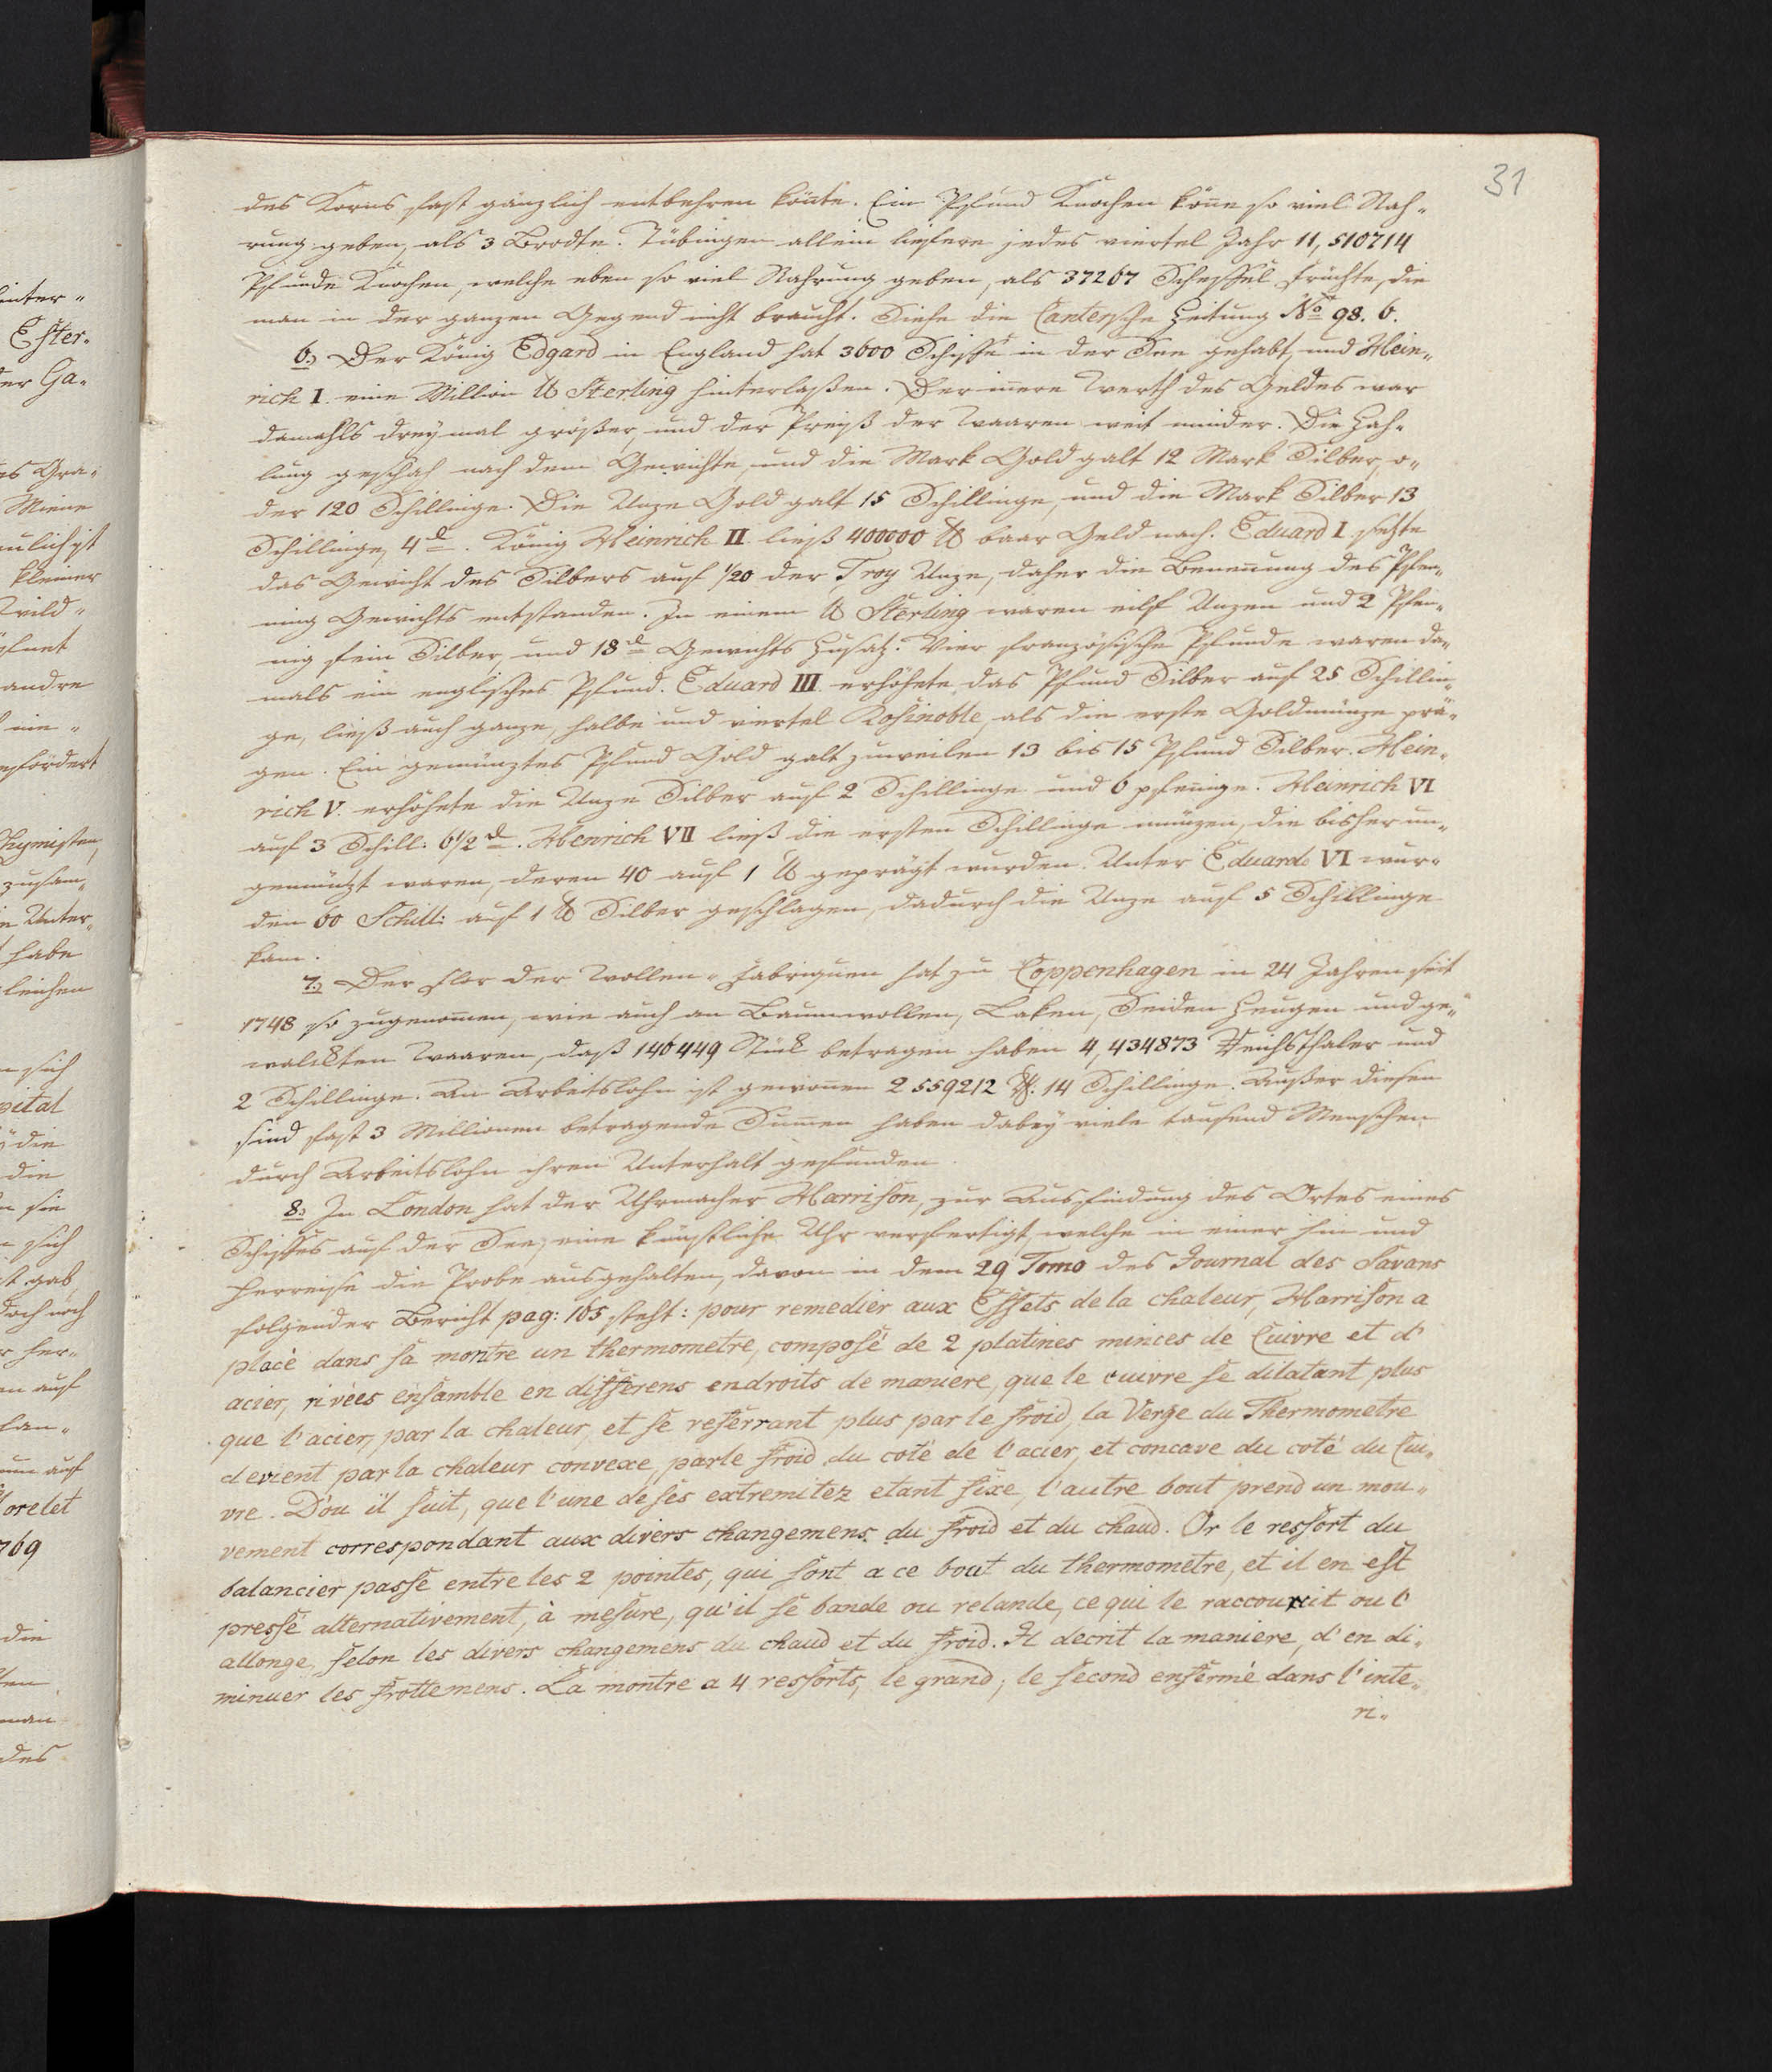 31
des Korns fast gänzlich entbehren könte. Ein Pfund Knochen köne so viel Nah-
rung geben, als 3 Brodte. Tübingen allein liefere jedes viertel Jahr 11,510714
Pfunde Knochen, welche eben so viel Nahrung geben, als 37267 Scheffel Früchte, die
man in der ganzen Gegend nicht braucht. Siehe die Cantersche Zeitung No 98. 6.
6.) Der König Edgard in England hat 3600 Schiffe in der See gehabt, und Hein-
rich I. eine Million ℔ Sterling hinterlaßen. Der inere Werth des Geldes war
damahls dreymal größer, und der Preiß der Waaren weit minder. Die Zah-
lung geschah nach dem Gewichte, und die Mark Gold galt 12 Mark Silber, o-
der 120 Schillinge. Die Unze Gold galt 15 Schillinge, und die Mark Silber 13
Schillinge, 4 d. König Heinrich II. ließ 400000 ℔ baar Geld nach. Eduard I. setzte
das Gewicht des Silbers auf 1/20 der Troy Unze, daher die Benenung des Pfen-
ning Gewichts entstanden. In einem ℔ Sterling waren eilf Unzen und 2 Pfen-
nig fein Silber, und 18 d Gewichts Zusatz. Vier französische Pfunde waren da-
mals ein englisches Pfund. Eduard III. erhöhete das Pfund Silber auf 25 Schillin-
ge, ließ auch ganze, halbe und viertel Rosinoble, als die erste Goldmünze prä-
gen. Ein gemünztes Pfund Gold galt zuweilen 13 bis 15 Pfund Silber. Hein-
rich V. erhöhete die Unze Silber auf 2 Schillinge und 6 pfenige. Heinrich VI
auf 3 Schill: 6 1/2 d. Henrich VII ließ die ersten Schillinge münzen, die bisher un-
gemünzt waren, deren 40 auf 1 ℔ geprägt wurden. Unter Eduard VI wur-
den 60 Schill: auf 1 ℔ Silber geschlagen, dadurch die Unze auf 5 Schillinge
kam.
7.) Der flor der Wollen-Fabriquen hat zu Coppenhagen in 24 Jahren seit
1748 so zugenomen, wie auch an Baumwollen, Laken, Seiden Zeugen und ge-
walckten Waaren, daß 146449 Stück betragen haben 4,434873 Reichsthaler und
2 Schillinge. An Arbeitslohn ist gewonen 2559212 Rthl. 14 Schillinge. Außer diesen
sind fast 3 Millionen betragende Sumen haben dabey viele tausend Menschen
durch Arbeitslohn ihren Unterhalt gefunden.
8.) In London hat der Uhrmacher Harrison, zur Ausfindung des Ortes eines
Schiffes auf der See, eine künstliche Uhr verfertigt, welche in einer hin und
herreise die Probe ausgehalten, davon in dem 29 Tomo des Journal des Savans
folgender Bericht pag: 165 steht: pour remedier aux Effets de la chaleur, Harrison a
placé dans sa montre un thermometre, composé de 2 platines minces de Cuivre et d'
acier, rivées ensamble en differens endroits de maniere, que le cuivre se dilatant plus
que l'acier, par la chaleur, et se reserrant plus par le froid, la Verge du Thermometre
devient par la chaleur convexe, parle froid du coté de l'acier, et concave du coté du Cui-
vre. D'ou il suit, que l'une de ses extremitez etant fixe, l'autre bout prend un mou-
vement correspondant aux divers changemens du froid et du chaud. Or le ressort du
balancier passe entre les 2 pointes, qui sont a ce bout du thermometre, et il en est
pressé alternativement, à mesure, qu'il se bande ou relande, ce qui le raccourcit ou l'
allonge, selon les divers changemens du chaud et du froid. Il decrit la maniere, d'en di-
minuer les frottemens. La montre a 4 ressorts, le grand; le second enfermé dans l'inte-
ri-